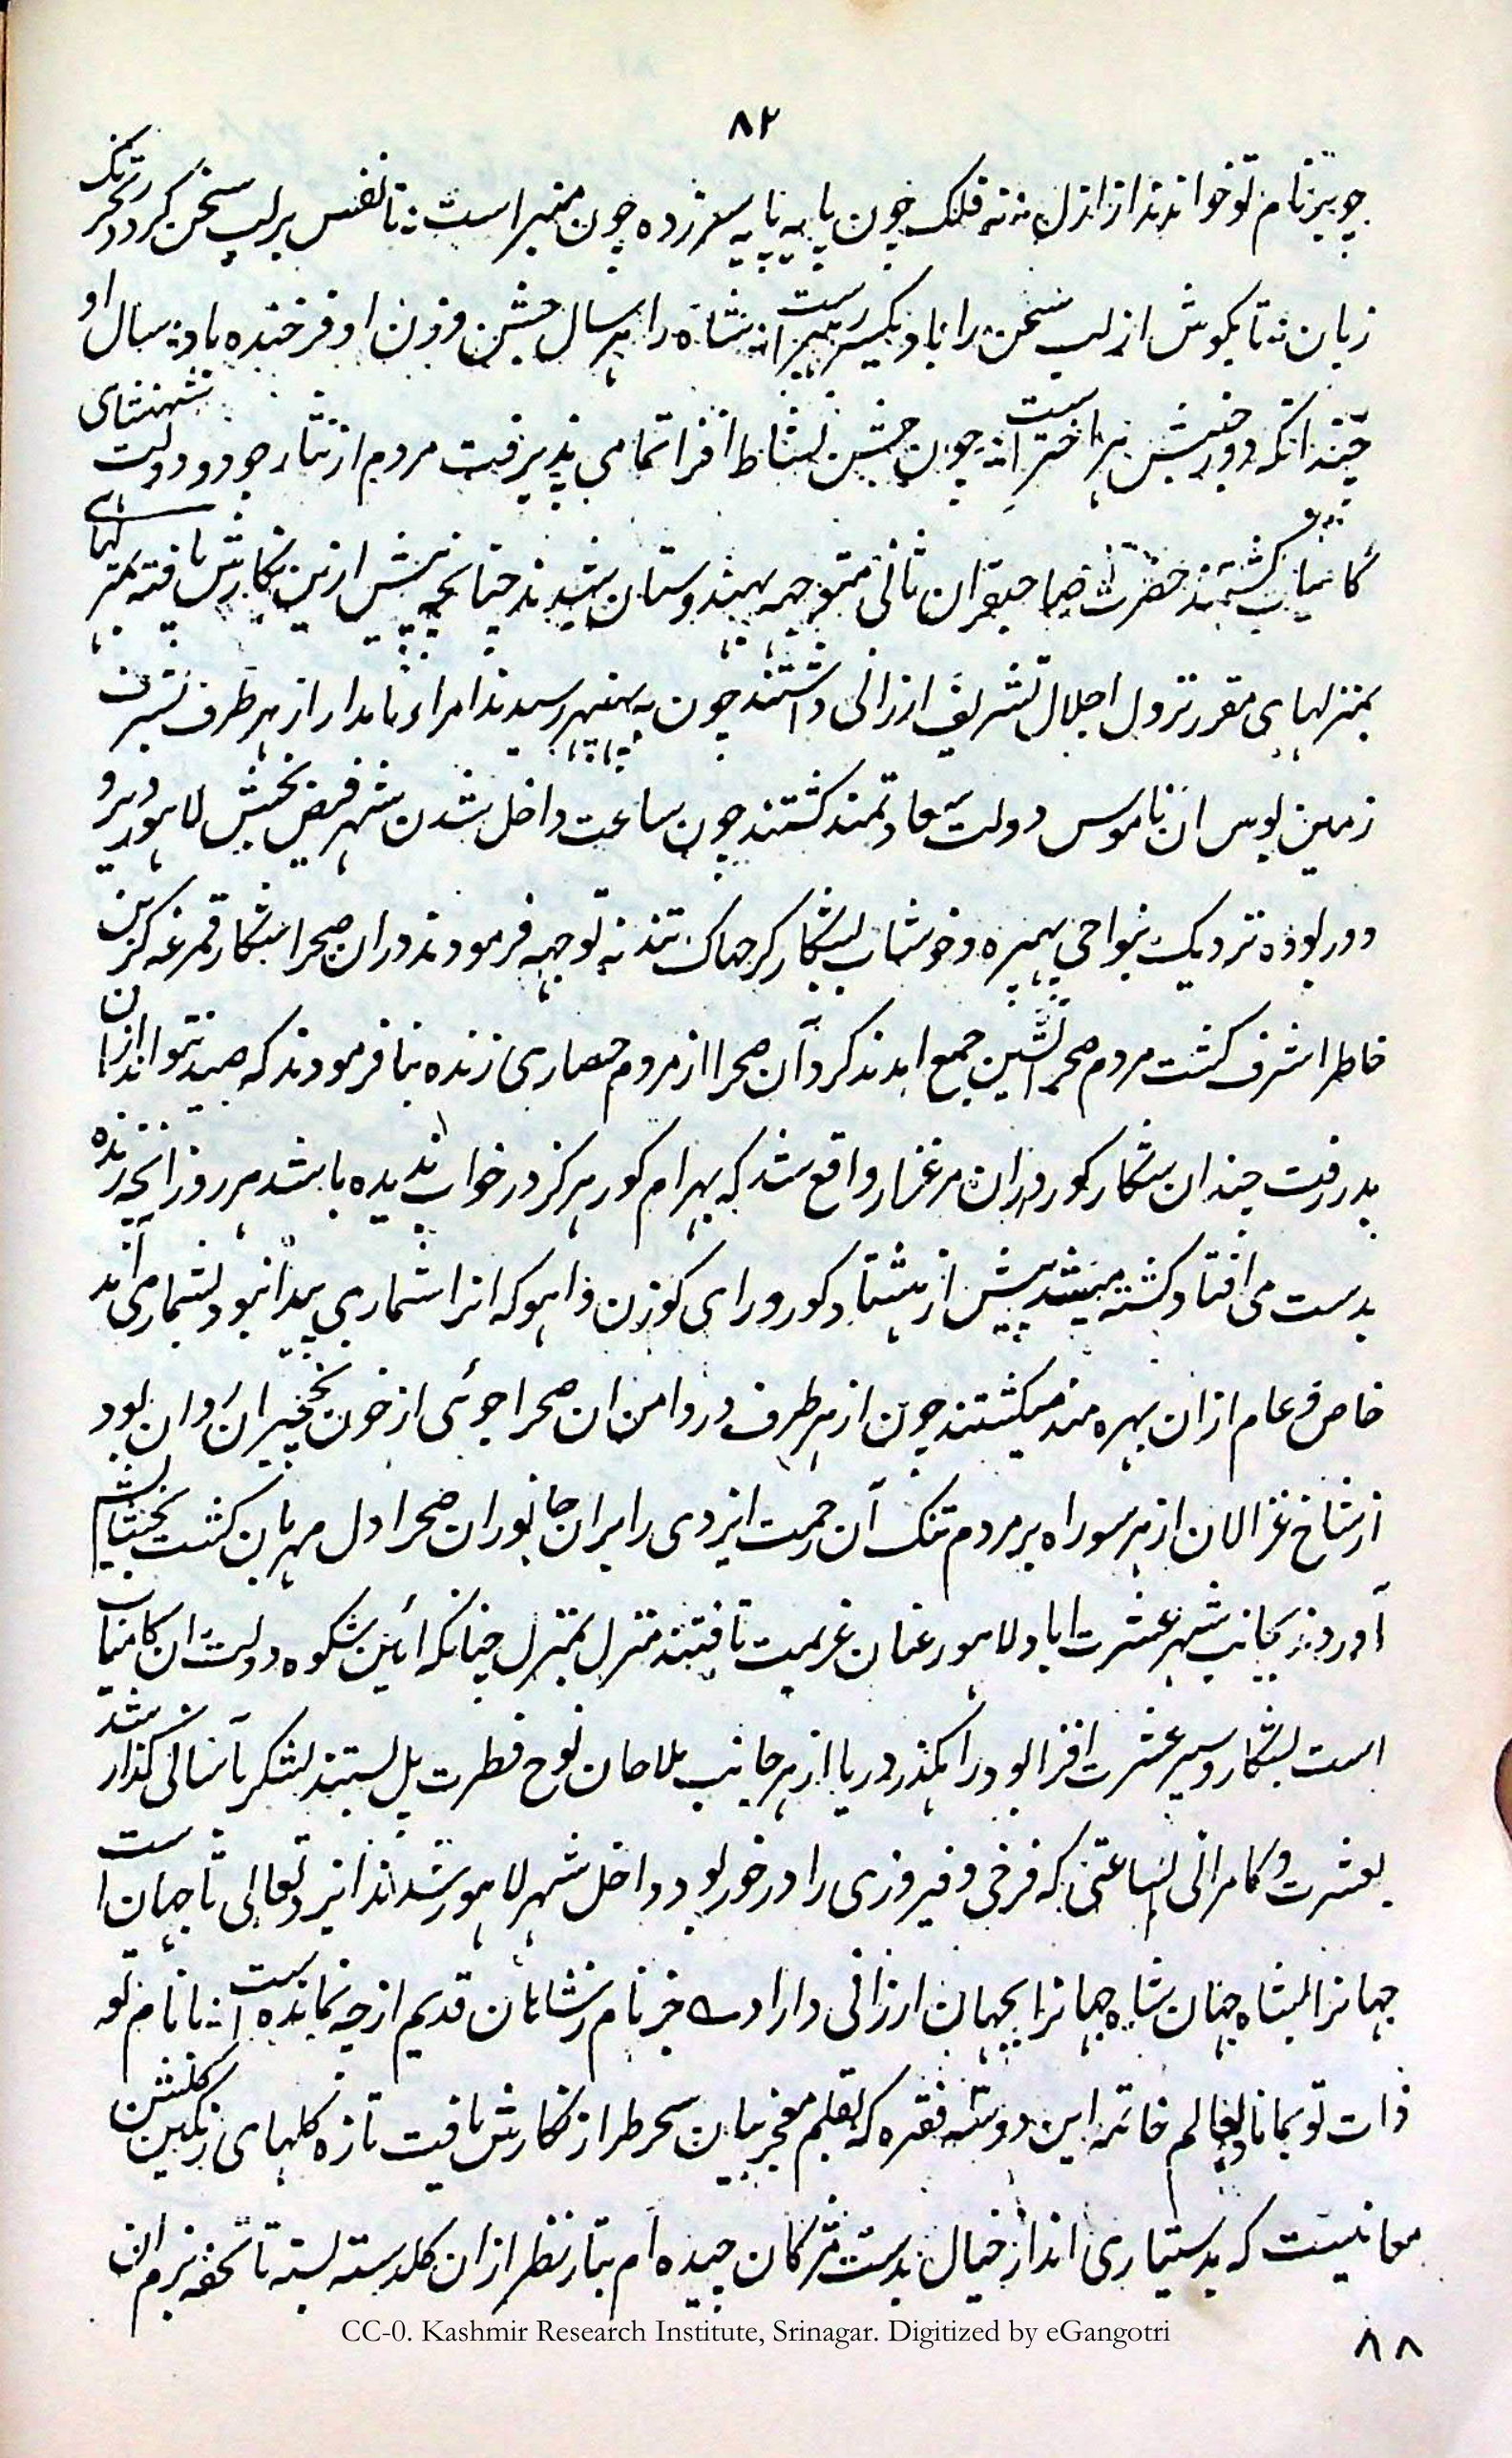 ۸۲
چوبیر نام تو خواندند از ازل نه فلک چون پایه پایه سر زده چون منبر است تا نفس بر لب سخن گردد محرک
زبان تا بگوش از لب سخن را باد یکسر رهبر است شاه را هر سال جشن وزن او فرخنده باد سال او
چندانکه دور جنبش هر اختر است چون جشن نشاط افزا تمامی پذیرفت مردم از نثار جود و دولت شهنشاهی
کامیاب گشتند حضرت صاحبقران ثانی متوجه هندوستان شدند چنانچه پیش ازین نگارش یافته بمنزلهای
بمنزلهای مقرر نزول اجلال تشریف ارزانی داشتند چون به بهنبهر رسیدند امراء نامدار از هر طرف بشرف
زمین بوس ان ناموس دولت سعادتمند گشتند چون ساعت داخل شدن شهر فیض بخش لاهور دیر و
دور بوده نزدیک بنواحی بهیره و خوشاب بشکار کرجهاک نندنه توجهه فرمودند دران صحرا شکار قمرغه گزین
خاطر اشرف گشت مردم صحرا نشین جمع امدند گرد آن صحرا از مردم حصاری زنده بنا فرمودند که صید نتواند ازان
بدر رفت چندان شکار کور دران مرغزار واقع شد که بهرام کور هرگز در خواب ندیده باشد هر روز انچه زنده
بدست می افتاد کشته میشد بیش از هشتاد کور ورای کوزن و اهو که انرا شماری پیدا نبود بشمار می آمد
خاص و عام ازان بهره مند میگشتند چون از هر طرف در دامن ان صحرا جوئی از خون نخچیران روان بود
از شاخ غزالان از هر سو راه بر مردم تنک آن رحمت ایزدی را بران جانوران صحرا دل مهربان گشت بخشایش
آورده بجانب شهر عشرت اباد لاهور عنان عزیمت تافتند منزل بمنزل چنانکه ائین شکوه دولت ان کامیاب
است بشکار و سیر عشرت افزا بود در انگذر دریا از هر جانب ملاحان نوح فطرت پل بستند لشکر بآسانی گذار شد
بعشرت و کامرانی بساعتی که فرخی و فیروزی را در خور بود داخل شهر لاهور شدند ایزد تعالی تا جهان است
جهانرا بشاه جهان شاه جهانرا بجهان ارزانی داراد جز نام ز شاهان قدیم از چه نمانده است تا نام تو
ذات تو بماناد بعالم خاتمه این دو سه فقره که بقلم معجز بیان سحر طراز نگارش یافت تازه گلهای رنگین گلشن
معانیست که بدستیاری انداز خیال بدست مژگان چیده ام بتار نظر ازان گلدسته بسته تا تحفه بزم ان
CC-0. Kashmir Research Institute, Srinagar. Digitized by eGangotri
۸۸